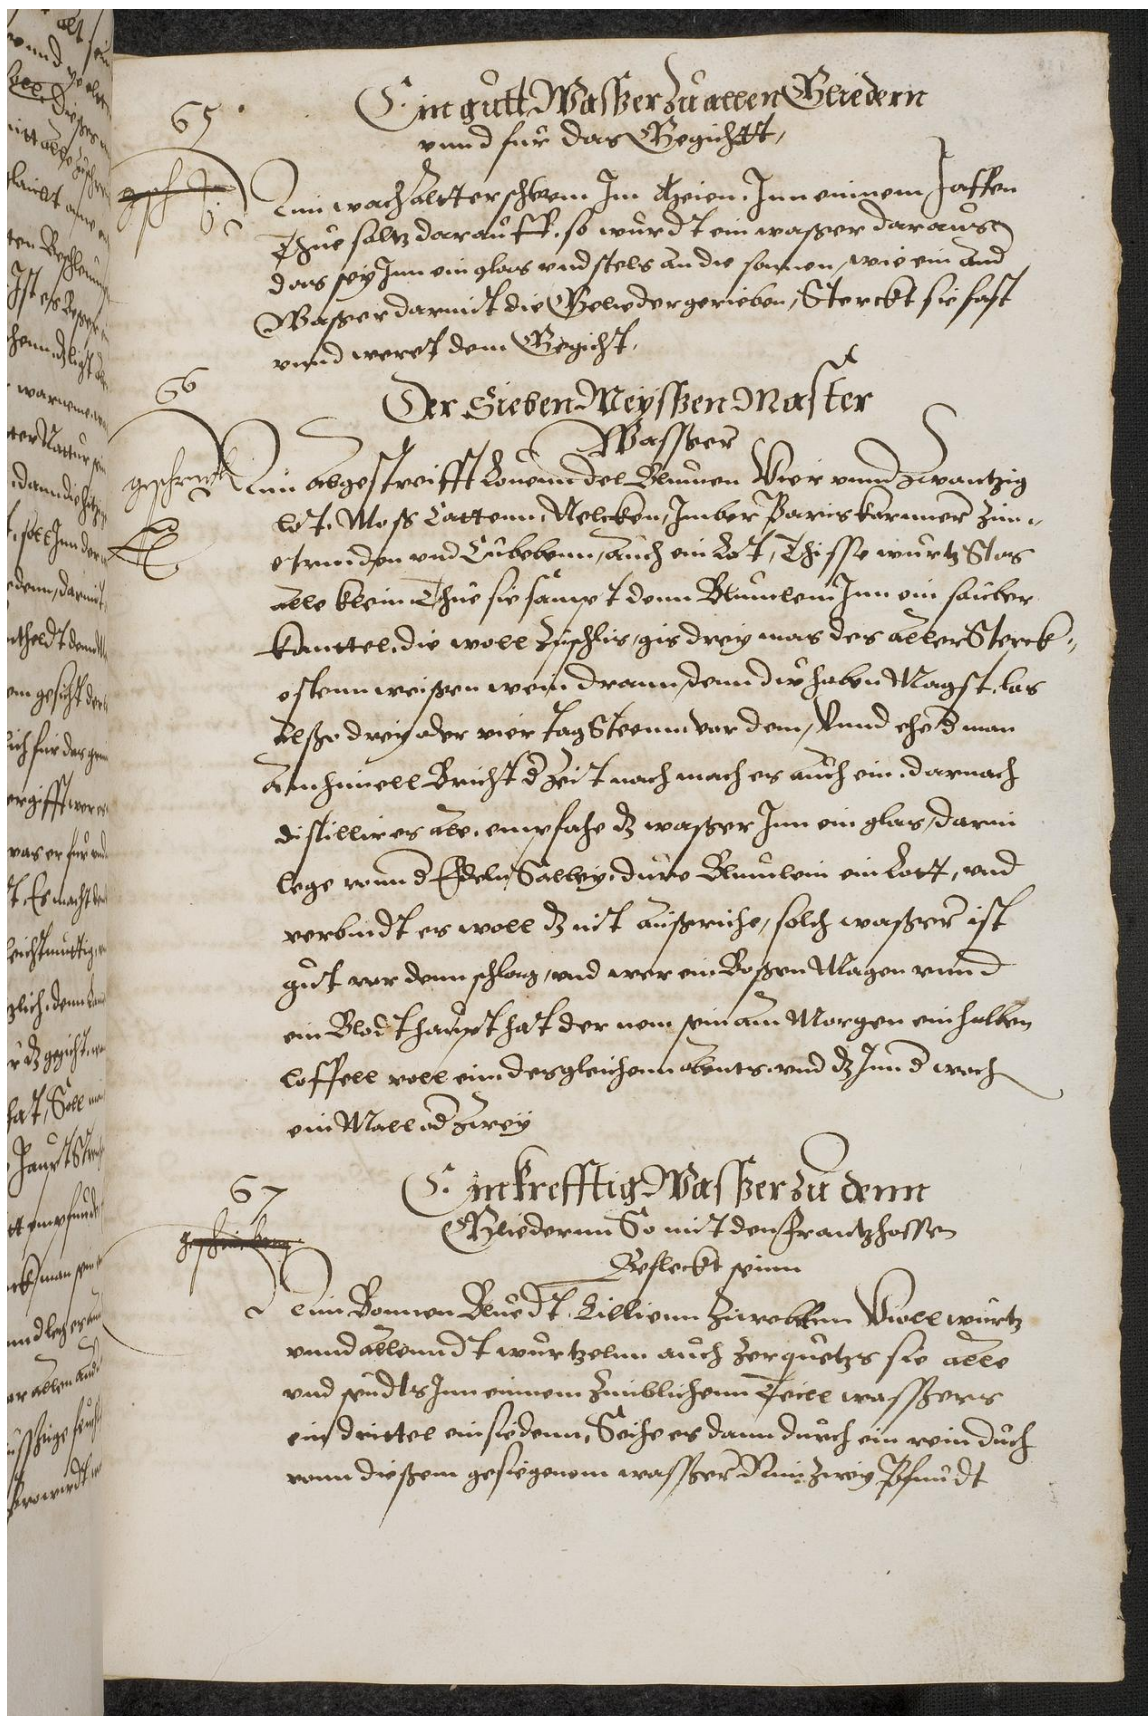 65
Ein gutt Waßßer Zu allen Gliedern
vnnd für das Gegichtt,
Nim wachaltter schwem Im Meien, Inn einnem Haffen
Thue saltz darauff, so wurdt ein waßer daraus
das sey Inn ein glas vnd stels an die sonnen, wie ein and
Waßer darmit die Geliedergerieben, Sterckt sie fast
vnnd weret dem Gegicht.
66
Der Sieben Meyßßen Master
Waßßer
Nim abgestreifft Lauenndel Blumen Vier vnnd Zwantzig
lot, Moss Cattenn, Nelcken, Imber Pariskornner Zim-
etrinden vnd Cubebenn, auch ein Lot, Thisse wurtz Stos
alle klein Thue sie sampt denn Blumlein Inn ein sauber
kanttel, die woll Zuschlis, gis drey mas des aller Sterck-
estenn weißen wein drann, denn du haben Magst, las
Alßo drey oder vier tag Steenn vor dem, Vnnd ehe man
distillir es alle, empfahe dz waßer Inn ein glas, darin
lege vonn d Edeln Salbey, dure Blumlein ein Lott, vnd
verbindt es woll dz nit außriche, solch waßßer ist
gut vor denn schlag, vnd wer ein Boßen Magen vnnd
ein Blodt haupt hat der nem sein am Morgen ein halben
loffell voll ein desgleichenn abents vnd dz Inn d woch
ein Mall od Zwey
67
Ein krefftig Waßßer Zu denn
Gliedernn So mit den frantzhossen
Befleckt seinn
Nim Bonnen Bluedt, Lillienn Zwibbenn Viollwurtz
vnnd allenndt wurtzelnn auch Zerquetzs sie alle
vnd seudts Inn einnem Zimblichenn Teill waßßers
ein drittel einsiedenn, Seihe es dann durch ein rein duch
vonn dießem gesiegenem waßßer Nim Zwey Pfundt